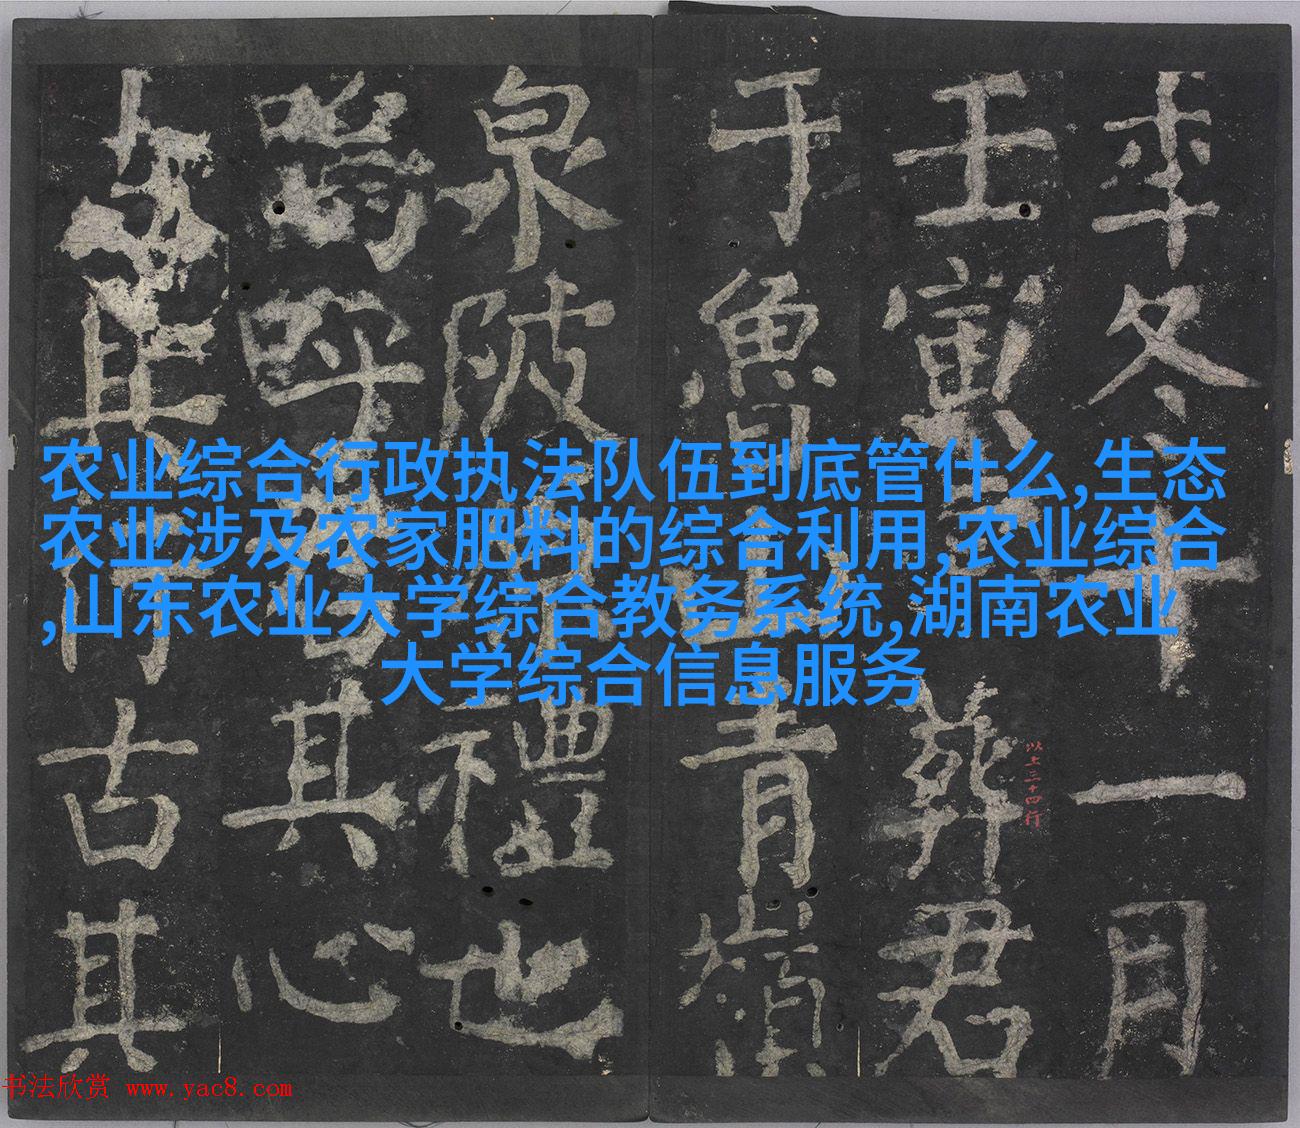 年冬十一月
壬寅葬君
于魯山青嶺
泉陂原禮也
嗚呼君其心
其行古其
以上三十四行
农业综合行政执法队伍到底管什么,生态
农业涉及农家肥料的综合利用,农业综合
,山东农业大学综合教务系统,湖南农业
大学综合信息服务
书法欣赏 www.yac8.com